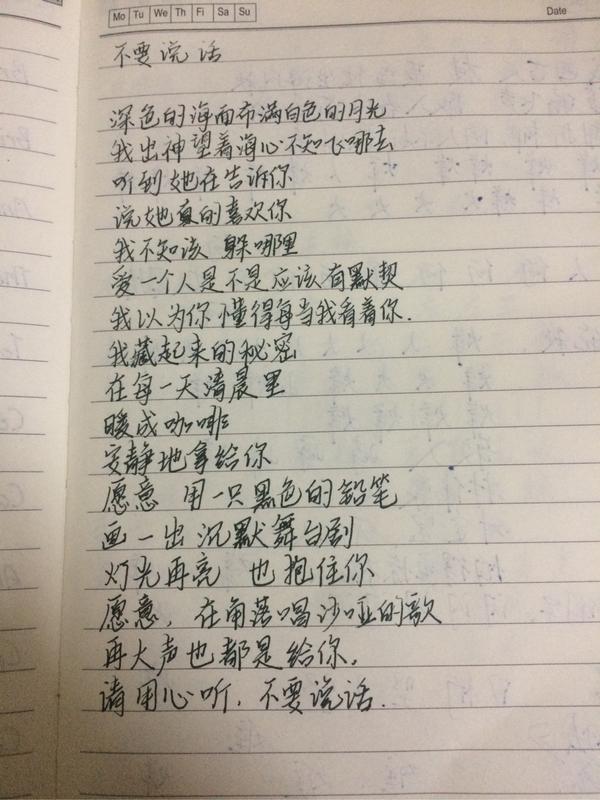 Mo Tu We Th Fi Sa Su
Date
不要说话
深色的海面布满白色的月光
我出神望着海心不知飞哪去
听到她在告诉你
说她真的喜欢你
我不知该 躲哪里
爱一个人是不是应该有默契
我以为你懂得每当我看着你.
我藏起来的秘密
在每一天清晨里
暖成咖啡
安静地拿给你
愿意 用一只黑色的铅笔
画一出沉默舞台剧
灯光再亮 也抱住你
愿意, 在角落唱沙哑的歌
再大声也都是给你.
请用心听, 不要说话.